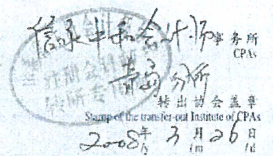 信永中和会计师事务所
CPAs
青岛分所
转出协会盖章
Stamp of the transfer-out Institute of CPAs
2008年3月26日
/y /m /d